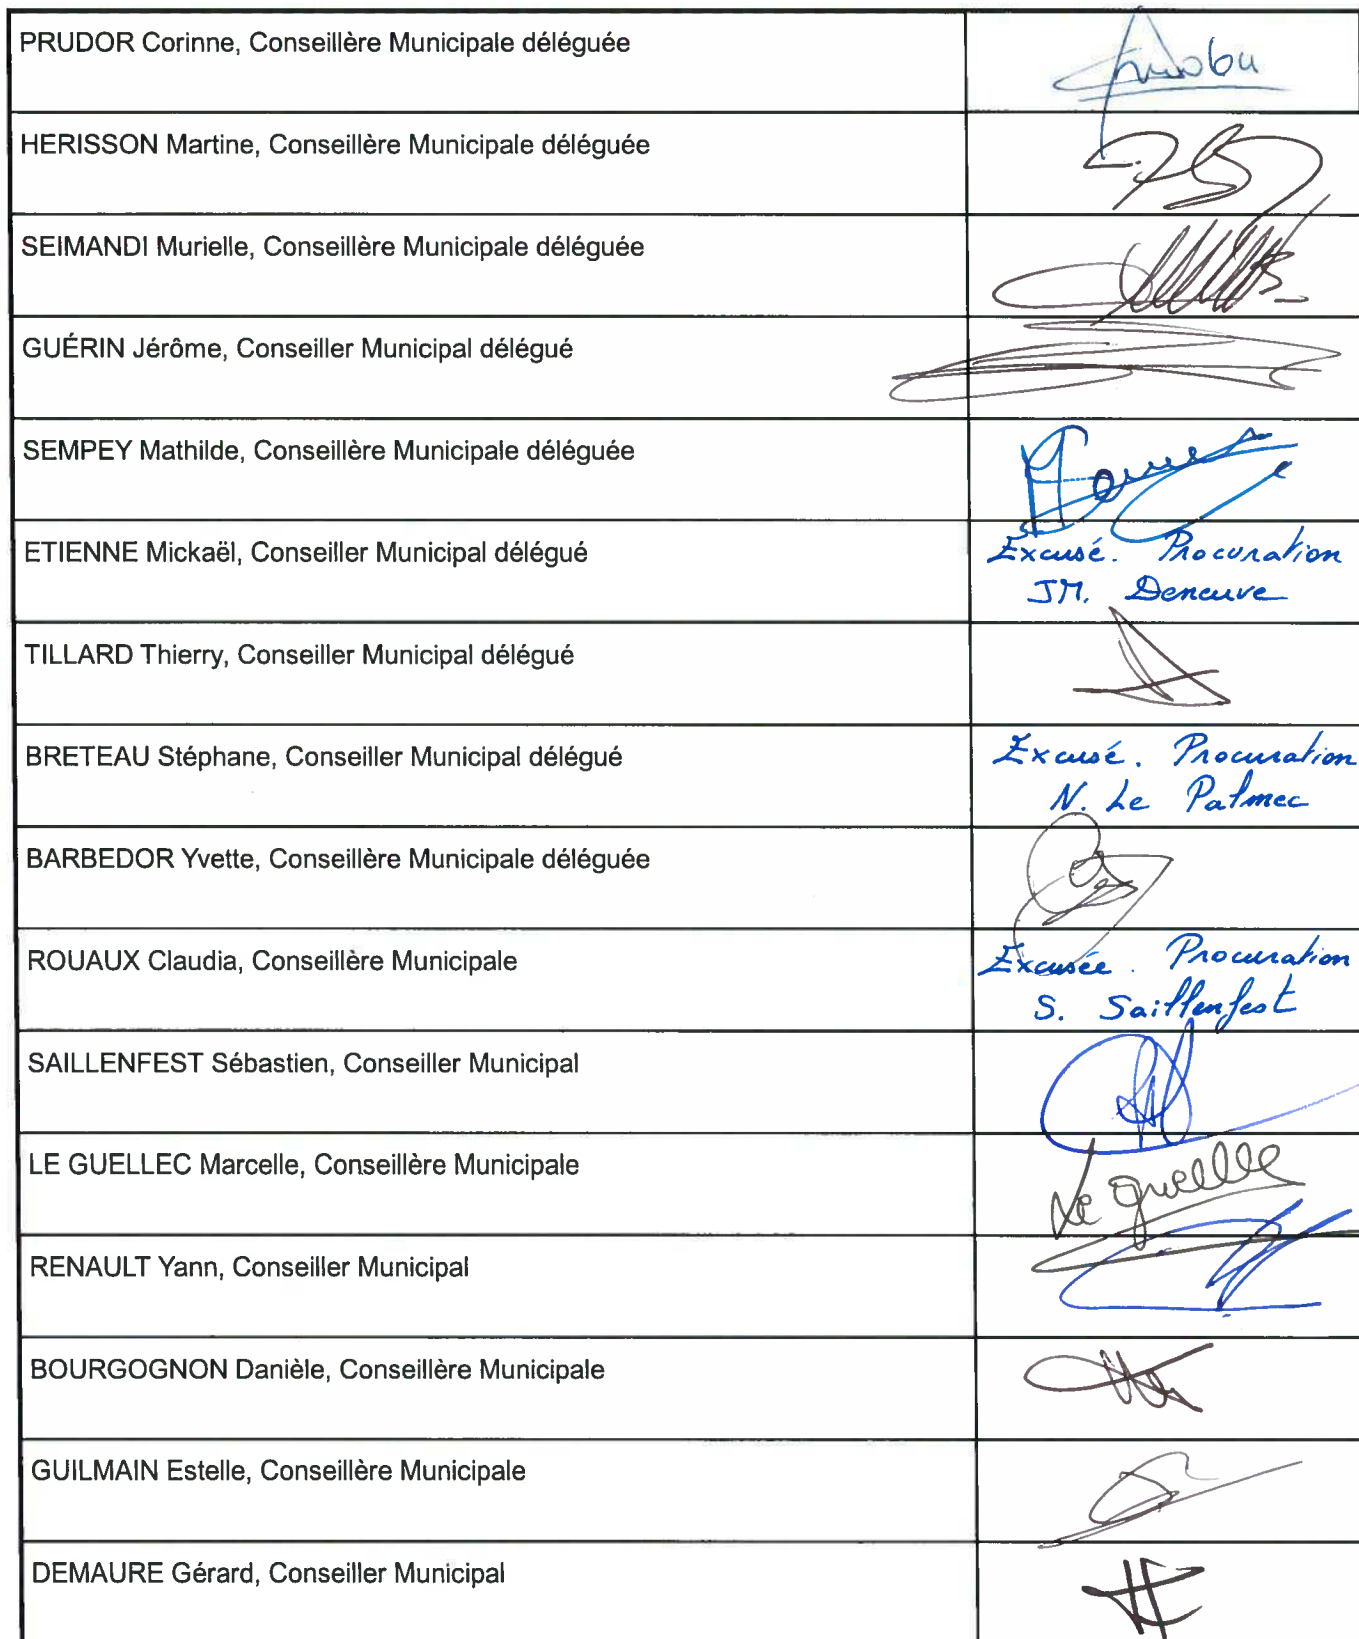 PRUDOR Corinne, Conseillère Municipale déléguée
HERISSON Martine, Conseillère Municipale déléguée
SEIMANDI Murielle, Conseillère Municipale déléguée
GUÉRIN Jérôme, Conseiller Municipal délégué
SEMPEY Mathilde, Conseillère Municipale déléguée
ETIENNE Mickaël, Conseiller Municipal délégué
Excusé. Procuration
JM. Deneuve
TILLARD Thierry, Conseiller Municipal délégué
BRETEAU Stéphane, Conseiller Municipal délégué
Excusé. Procuration
N. Le Palmec
BARBEDOR Yvette, Conseillère Municipale déléguée
ROUAUX Claudia, Conseillère Municipale
Excusée. Procuration
S. Saillenfest
SAILLENFEST Sébastien, Conseiller Municipal
LE GUELLEC Marcelle, Conseillère Municipale
Le Guelle
RENAULT Yann, Conseiller Municipal
BOURGOGNON Danièle, Conseillère Municipale
GUILMAIN Estelle, Conseillère Municipale
DEMAURE Gérard, Conseiller Municipal